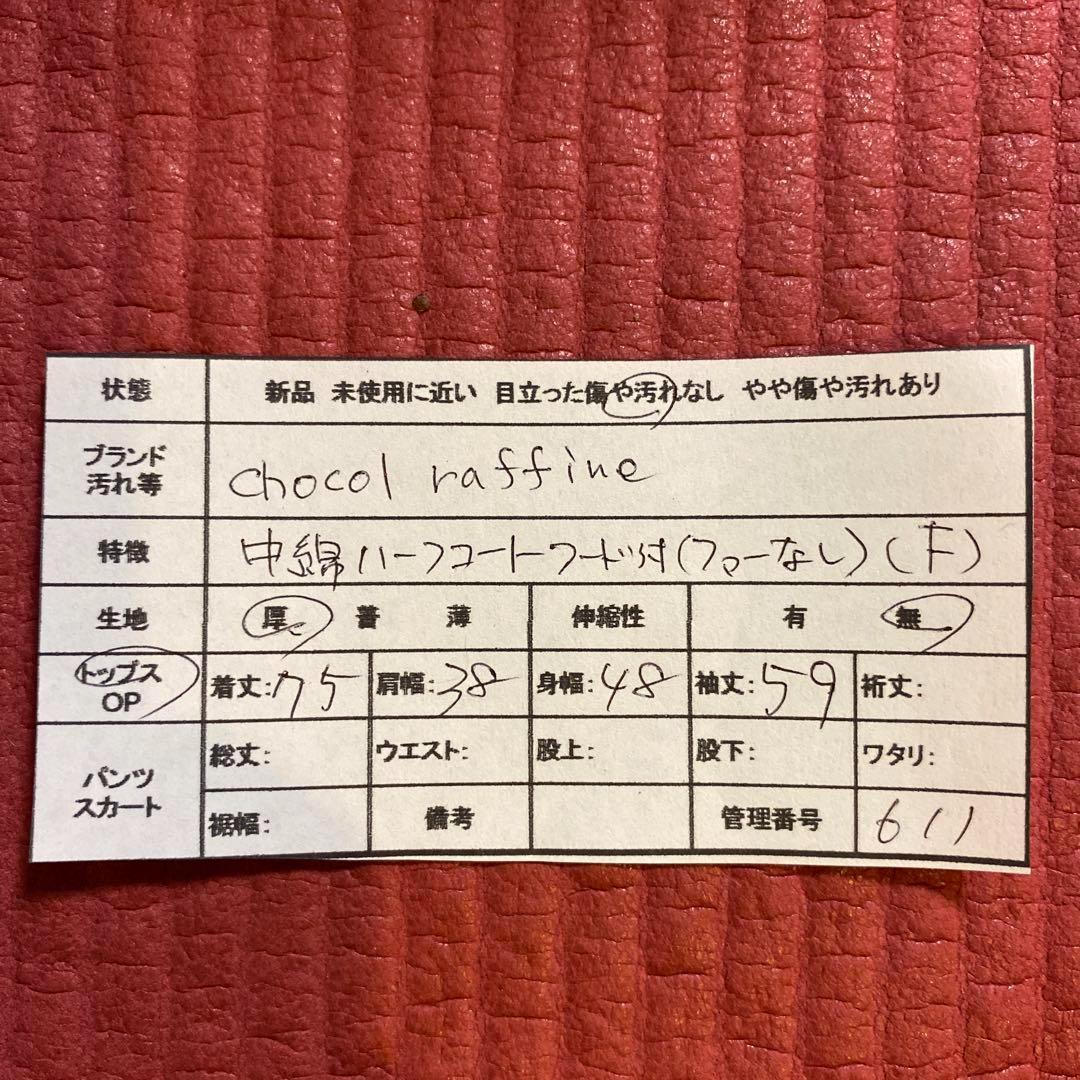 状態 新品 未使用に近い 目立った傷や汚れなし やや傷や汚れあり
ブランド
汚れ等
chocol raffine
特徴 中綿ハーフコートフード付(ファーなし)(F)
生地 厚 普 薄 伸縮性 有 無
トップス
OP
着丈:75 肩幅:38 身幅:48 袖丈:59 裄丈:
パンツ
スカート
総丈: ウエスト: 股上: 股下: ワタリ:
裾幅: 備考 管理番号 611